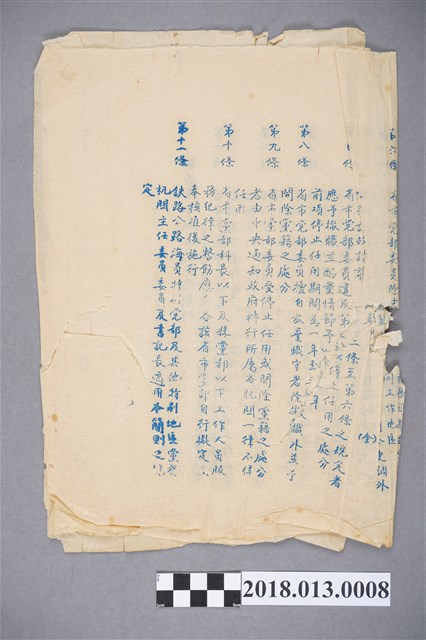 省市党部委員除
不在此限
省市党部委員違反第二條至第六條之規定者
應予撤職並酌量情節予以停止任用之處分
前項停止任用期間為一年至三年
第八條
省市党部委員擅自放棄職守者除撤職外并予
開除黨籍之處分
第九條
省市黨部委員受停止任用或開除黨籍之處分
者由中央通知政府轉行所屬各机関一律不得
任用
第十條
省市黨部科長以下及縣黨部以下工作人員服
務紀律之整飭應由各該省市黨部自行擬定
奉核准後施行
第十一條
鉄路公路海員特別党部及其他特别地區黨務
机関主任委員委員及書記長適用本簡則之
定
工作地區
調外
2018.013.0008